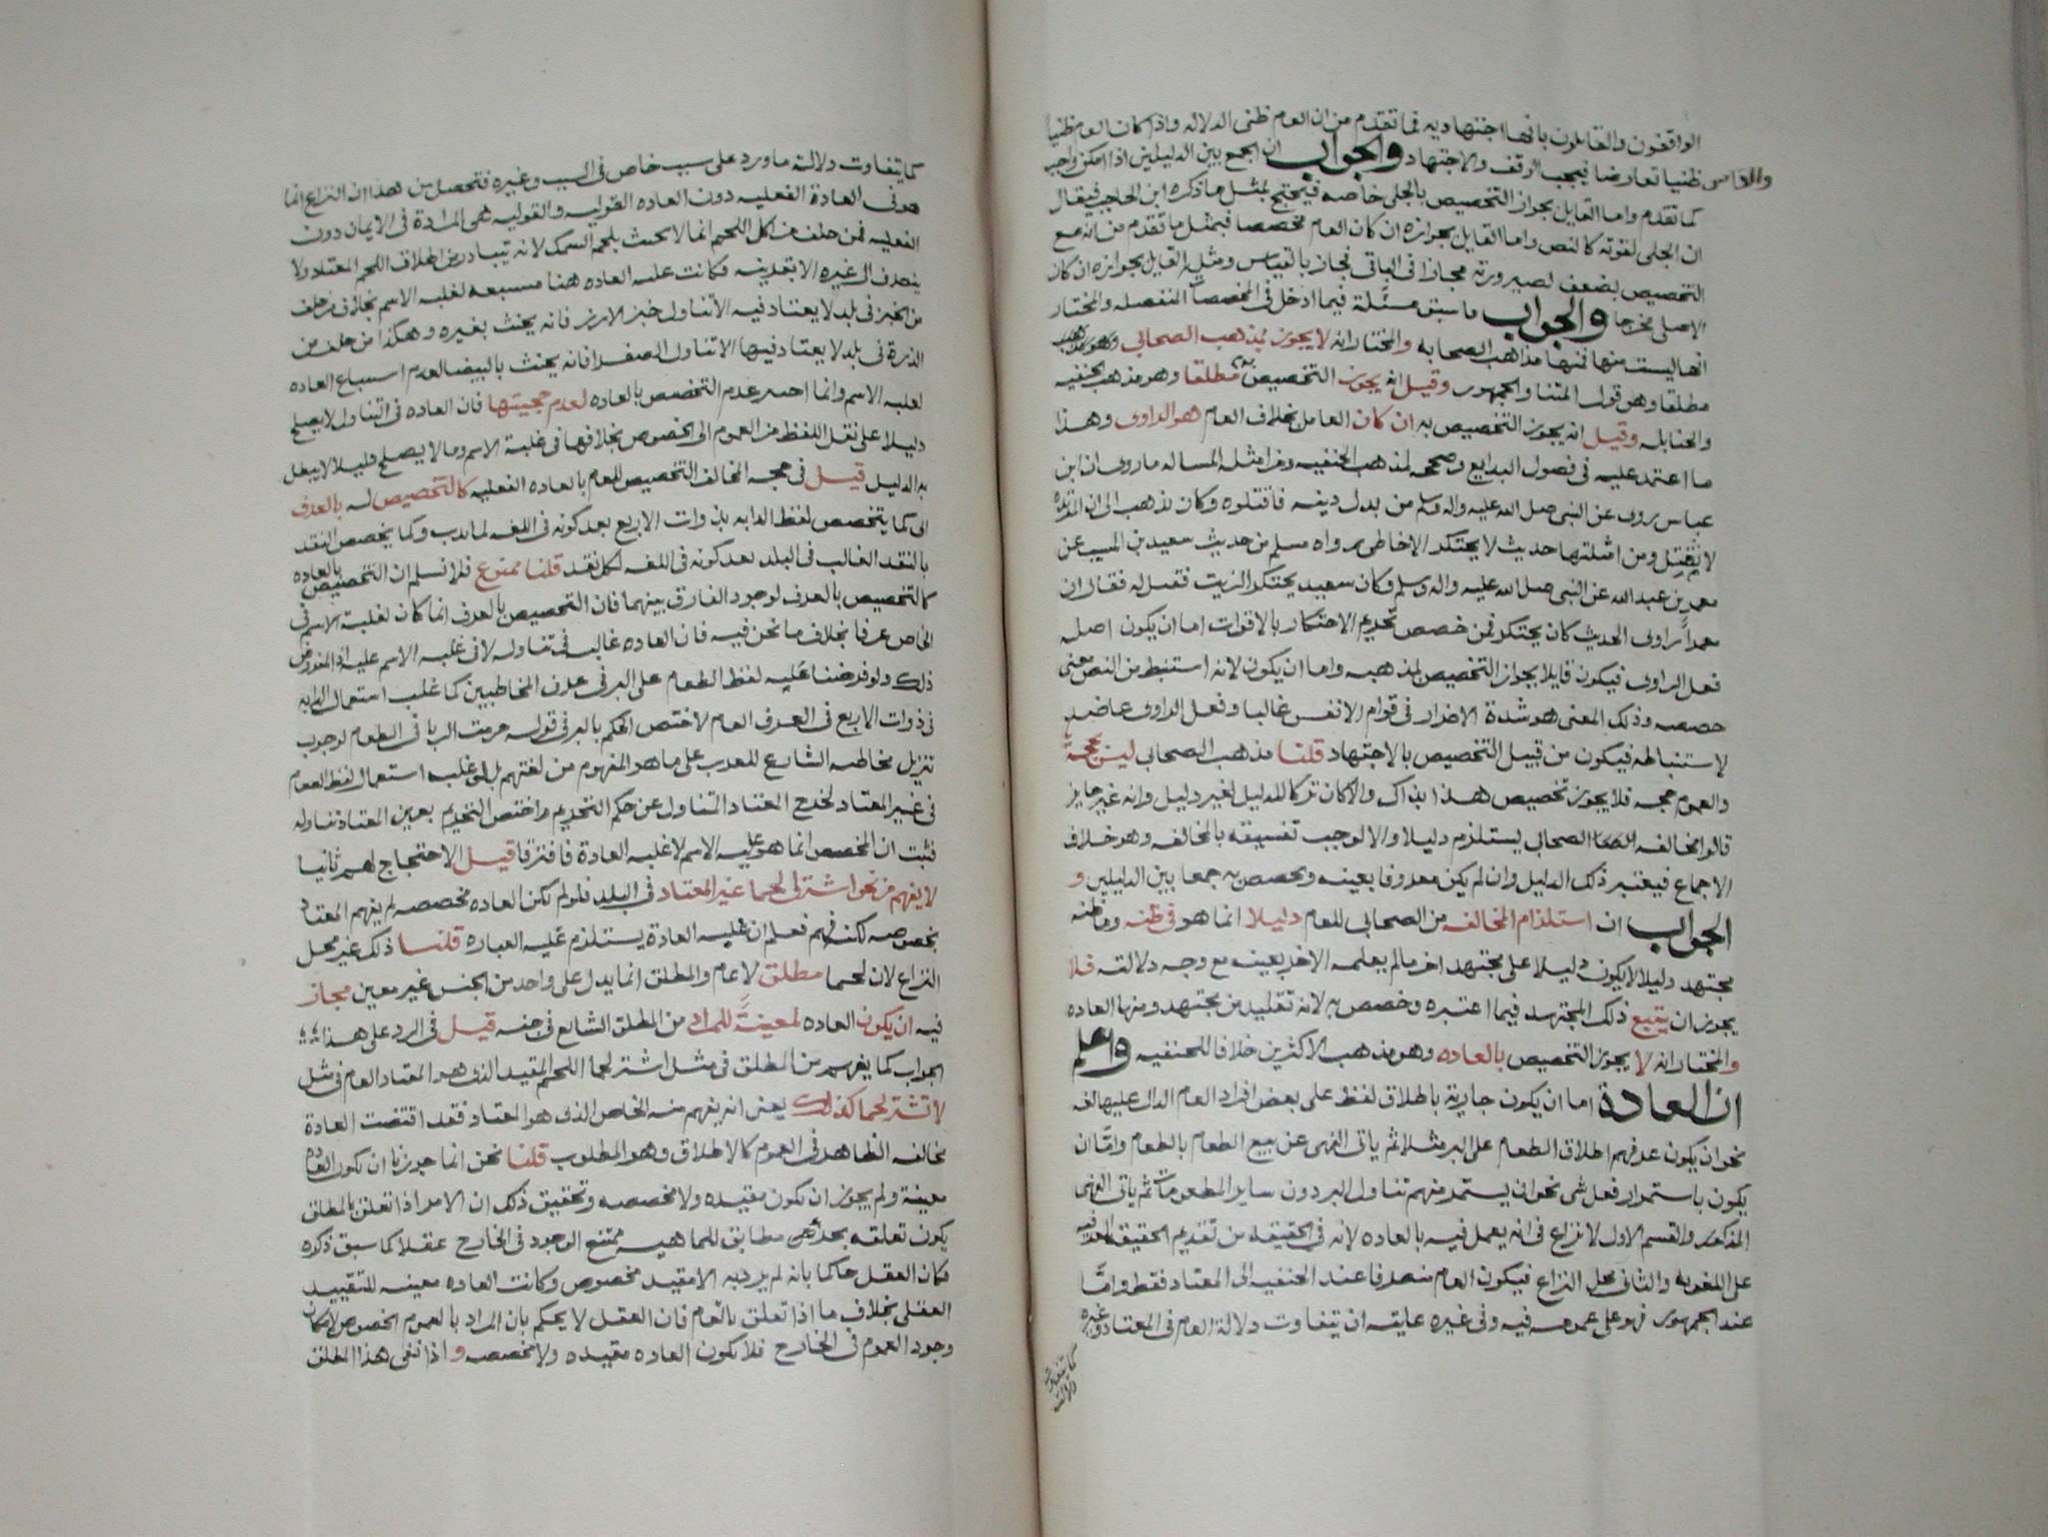 الواقفون والقايلون بانها اجتهاديه فما تقدم من ان العام ظنى الدلاله واذا كان العام ظنيا
والقياس ظنيا تعارضا فيجب الوقف والاجتهاد والجواب ان الجمع بين الدليلين اذا امكن واجب
كما تقدم واما القايل بجواز التخصيص بالجلى خاصه فيحتج بمثل ما ذكره ابن الحاجب فيقال
ان الجلى لقوته كالنص واما القايل بجوازه ان كان العام مخصصا فبمثل ما تقدم من انه مع
التخصيص يضعف لصيرورته مجازا فى الباقى فجاز بالقياس ومثله القايل بجوازه ان كان
الاصل مخرجا والجواب ما سبق مسئلة فيما ادخل فى المخصصات المنفصله والمختار
انها ليست منها فمنها مذاهب الصحابه والمختار انه لا يجوز بمذهب الصحابى وهو مذهب
مطلقا وهو قول ائمتنا والجمهور وقيل انه يجوز التخصيص به مطلقا وهو مذهب الحنفيه
والحنابله وقيل انه يجوز التخصيص به ان كان العامل بخلاف العام هو الراوى وهذا
ما اعتمد عليه فى فصول البدايع وصححه لمذهب الحنفيه ومن امثله المساله ما روى ان ابن
عباس يروى عن النبى صلى الله عليه واله وسلم من بدل دينه فاقتلوه وكان يذهب الى ان المرتده
لا تقتل ومن امثلتها حديث لا يحتكر الا خاطى رواه مسلم من حديث سعيد بن المسيب عن
معمر بن عبد الله عن النبى صلى الله عليه واله وسلم وكان سعيد يحتكر الزيت فقيل له فقال ان
معمرا راوى الحديث كان يحتكر فمن خصص تحريم الاحتكار بالاقوات اما ان يكون اصله
فعل الراوى فيكون قايلا بجواز التخصيص لمذهبه واما ان يكون لانه استنبط من النص معنى
خصصه وذلك المعنى هو شدة الاضرار فى قوام الانفس غالبا وفعل الراوى عاضد
لاستنباطه فيكون من قبيل التخصيص بالاجتهاد قلنا مذهب الصحابى ليس بحجة
والعموم حجه فلا يجوز تخصيص هذا بذاك والا كان تركا للدليل لغير دليل وانه غير جايز
قالوا مخالفه الصحابى يستلزم دليلا والا لوجب تفسيقه بالمخالفه وهو خلاف
الاجماع فيعتبر ذلك الدليل وان لم يكن معروفا بعينه ويخصص به جمعا بين الدليلين و
الجواب ان استلزام المخالفه من الصحابى للعام دليلا انما هو فى ظنه وما ظنه
مجتهد دليلا لا يكون دليلا على مجتهد اخر ما لم يعلمه الاخر بعينه مع وجه دلالته فلا
يجوز ان يتبع ذلك المجتهد فيما اعتبره وخصص به لانه تقليد من مجتهد ومنها العاده
والمختار انه لا يجوز التخصيص بالعاده وهو مذهب الاكثرين خلافا للحنفيه واعلم
ان العادة اما ان يكون جارية باطلاق لفظ على بعض افراد العام الدال عليها لغه
نحو ان يكون عرفهم اطلاق الطعام على البر مثلا ثم ياتى النهى عن بيع الطعام بالطعام واما ان
يكون باستمرار فعل شى نحو ان يستمر منهم تناول البر دون ساير المطعومات ثم ياتى النهى
المذكور والقسم الاول لا نزاع فى انه يعمل فيه بالعاده لانه فى الحقيقه من تقديم الحقيقه العرفيه
على اللغويه والثانى محل النزاع فيكون العام منصرفا عند الحنفيه الى المعتاد فقط واما
عند الجمهور فهو على عمومه فيه وفى غيره غايته ان يتفاوت دلالة العام فى المعتاد وغيره
كما يتفاوت
دلالته
كما يتفاوت دلالته ما ورد على سبب خاص فى السبب وغيره فتحصل من هذا ان النزاع انما
هو فى العادة الفعليه دون العاده القوليه والقوليه هى المرادة فى الايمان دون
الفعليه فمن حلف من اكل اللحم انما لا يحنث بلحم السمك لانه يتبادر من اطلاق اللحم المعتاد ولا
ينصرف الى غيره الا بقرينه فكانت غلبه العاده هنا مستتبعه لغلبه الاسم بخلاف من حلف
من الخبز فى بلد لا يعتاد فيه الا تناول خبز الارز فانه يحنث بغيره وهكذا من حلف من
الذرة فى بلد لا يعتاد فيها الا تناول الصفرا فانه يحنث بالبيضا لعدم استتباع العاده
لغلبه الاسم وانما اختير عدم التخصيص بالعاده لعدم حجيتها فان العاده فى التناول لا يصلح
دليلا على نقل اللفظ من العموم الى الخصوص بخلافها فى غلبة الاسم وما لا يصلح دليلا لا يبطل
به الدليل قيل فى حجه المخالف التخصيص للعام بالعاده الفعليه كالتخصيص له بالعرف
اى كما يتخصص لفظ الدابه بذوات الاربع بعد كونه فى اللغه لما يدب وكما يخصص النقد
بالنقد الغالب فى البلد بعد كونه فى اللغه لكل نقد قلنا ممنوع فلا نسلم ان التخصيص بالعاده
كالتخصيص بالعرف لوجود الفارق بينهما فان التخصيص بالعرف انما كان لغلبة الاسم فى
الخاص عرفا بخلاف ما نحن فيه فان العاده غالبه فى تناوله لا فى غلبه الاسم عليه اذ المفروض
ذلك ولو فرضنا غلبه لفظ الطعام على البر فى عرف المخاطبين كما غلب استعمال الدابه
فى ذوات الاربع فى العرف العام لاختص الحكم بالبر فى قوله حرمت الربا فى الطعام لوجوب
تنزيل مخاطبه الشارع للعرب على ما هو المفهوم من لغتهم بل لو غلب استعمال لفظ الطعام
فى غير المعتاد لخرج المعتاد التناول عن حكم التحريم واختص التحريم بغير المعتاد تناوله
فثبت ان المخصص انما هو غلبه الاسم لا غلبه العادة فافترقا قيل الاحتجاج لهم ثانيا
لا يفهم من نحو اشتر لى لحما غير المعتاد فى البلد فلو لم تكن العاده مخصصه لم يفهم المعتاد
بخصوصه لكنه فهم فعلم ان غلبه العادة يستلزم غلبه العباره قلنا ذلك غير محل
النزاع لان لحما مطلق لا عام والمطلق انما يدل على واحد من الجنس غير معين فجاز
فيه ان يكون العاده معينة للمراد من المطلق الشايع فى جنسه قيل فى الرد على هذا
الجواب كما يفهم من المطلق فى مثل اشتر لحما اللحم المقيد الذى هو المعتاد العام فى مثل
لا تشتر لحما كذلك يعنى انه يفهم منه الخاص الذى هو المعتاد فقد اقتضت العادة
مخالفه الظاهر فى العموم كالاطلاق وهو المطلوب قلنا نحن انما جوزنا ان تكون العاده
معينة ولم يجوز ان تكون مقيده ولا مخصصه وتحقيق ذلك ان الامر اذا تعلق بالمطلق
يكون تعلقه بجزئى مطابق للماهيه ممتنع الوجود فى الخارج عقلا كما سبق ذكره
فكان العقل حاكما بانه لم يرد به الا مقيد مخصوص وكانت العاده معينه للتقييد
العقلى بخلاف ما اذا تعلق بالعام فان العقل لا يحكم بان المراد بالعموم الخصوص لامكان
وجود العموم فى الخارج فلا تكون العاده مقيده ولا مخصصه واذا نفى هذا المطلق